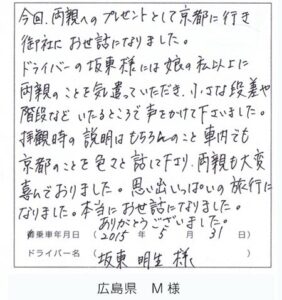 今回、両親へのプレゼントとして京都に行き
御社にお世話になりました。
ドライバーの坂東様には娘の私以上に
両親のことを気遣っていただき、小さな段差や
階段などいたるところで声をかけて下さいました。
拝観時の説明はもちろんのこと車内でも
京都のことを色々と話して下さり、両親も大変
喜んでおりました。思い出いっぱいの旅行に
なりました。本当にお世話になりました。
ありがとうございました。
乗車年月日 ( 2015 年 5 月 31 日 )
ドライバー名 ( 坂東 明生 様 )
広島県 M様